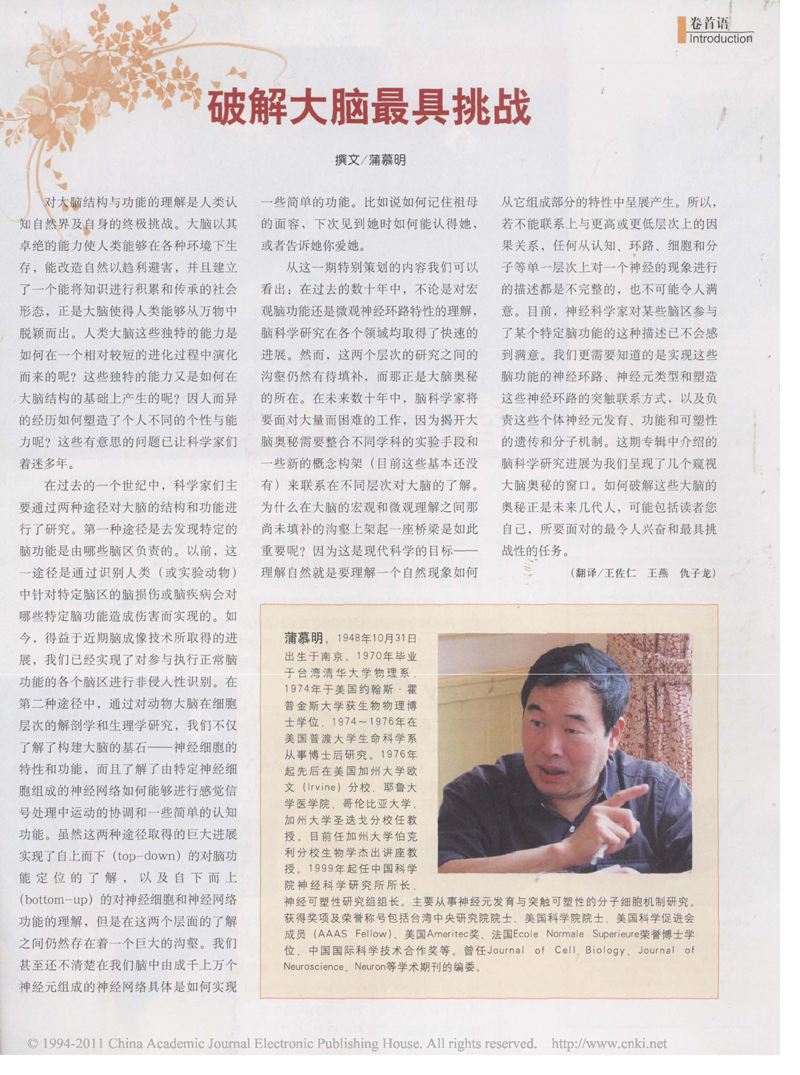 卷首语
Introduction
破解大脑最具挑战
撰文/蒲慕明
对大脑结构与功能的理解是人类认
知自然界及自身的终极挑战。大脑以其
卓绝的能力使人类能够在各种环境下生
存，能改造自然以趋利避害，并且建立
了一个能将知识进行积累和传承的社会
形态，正是大脑使得人类能够从万物中
脱颖而出。人类大脑这些独特的能力是
如何在一个相对较短的进化过程中演化
而来的呢？这些独特的能力又是如何在
大脑结构的基础上产生的呢？因人而异
的经历如何塑造了个人不同的个性与能
力呢？这些有意思的问题已让科学家们
着迷多年。
在过去的一个世纪中，科学家们主
要通过两种途径对大脑的结构和功能进
行了研究。第一种途径是去发现特定的
脑功能是由哪些脑区负责的。以前，这
一途径是通过识别人类（或实验动物）
中针对特定脑区的脑损伤或脑疾病会对
哪些特定脑功能造成伤害而实现的。如
今，得益于近期脑成像技术所取得的进
展，我们已经实现了对参与执行正常脑
功能的各个脑区进行非侵入性识别。在
第二种途径中，通过对动物大脑在细胞
层次的解剖学和生理学研究，我们不仅
了解了构建大脑的基石——神经细胞的
特性和功能，而且了解了由特定神经细
胞组成的神经网络如何能够进行感觉信
号处理中运动的协调和一些简单的认知
功能。虽然这两种途径取得的巨大进展
实现了自上而下（top-down）的对脑功
能定位的了解，以及自下而上
(bottom-up) 的对神经细胞和神经网络
功能的理解，但是在这两个层面的了解
之间仍然存在着一个巨大的沟壑。我们
甚至还不清楚在我们脑中由成千上万个
神经元组成的神经网络具体是如何实现
一些简单的功能。比如说如何记住祖母
的面容，下次见到她时如何能认得她，
或者告诉她你爱她。
从这一期特别策划的内容我们可以
看出：在过去的数十年中，不论是对宏
观脑功能还是微观神经环路特性的理解，
脑科学研究在各个领域均取得了快速的
进展。然而，这两个层次的研究之间的
沟壑仍然有待填补，而那正是大脑奥秘
的所在。在未来数十年中，脑科学家将
要面对大量而困难的工作，因为揭开大
脑奥秘需要整合不同学科的实验手段和
一些新的概念构架（目前这些基本还没
有）来联系在不同层次对大脑的了解。
为什么在大脑的宏观和微观理解之间那
尚未填补的沟壑上架起一座桥梁是如此
重要呢？因为这是现代科学的目标——
理解自然就是要理解一个自然现象如何
从它组成部分的特性中呈展产生。所以，
若不能联系上与更高或更低层次上的因
果关系，任何从认知、环路、细胞和分
子等单一层次上对一个神经的现象进行
的描述都是不完整的，也不可能令人满
意。目前，神经科学家对某些脑区参与
了某个特定脑功能的这种描述已不会感
到满意。我们更需要知道的是实现这些
脑功能的神经环路、神经元类型和塑造
这些神经环路的突触联系方式，以及负
责这些个体神经元发育、功能和可塑性
的遗传和分子机制。这期专辑中介绍的
脑科学研究进展为我们呈现了几个窥视
大脑奥秘的窗口。如何破解这些大脑的
奥秘正是未来几代人，可能包括读者您
自己，所要面对的最令人兴奋和最具挑
战性的任务。
（翻译/王佐仁 王燕 仇子龙）
蒲慕明，1948年10月31日
出生于南京。1970年毕业
于台湾清华大学物理系，
1974年于美国约翰斯·霍
普金斯大学获生物物理博
士学位，1974～1976年在
美国普渡大学生命科学系
从事博士后研究。1976年
起先后在美国加州大学欧
文（Irvine）分校、耶鲁大
学医学院、哥伦比亚大学、
加州大学圣迭戈分校任教
授。目前任加州大学伯克
利分校生物学杰出讲座教
授。1999年起任中国科学
院神经科学研究所所长、
神经可塑性研究组组长。主要从事神经元发育与突触可塑性的分子细胞机制研究。
获得奖项及荣誉称号包括台湾中央研究院院士、美国科学院院士、美国科学促进会
成员（AAAS Fellow）、美国Ameritec奖、法国Ecole Normale Superieure荣誉博士学
位、中国国际科学技术合作奖等。曾任Journal of Cell Biology、Journal of
Neuroscience、Neuron等学术期刊的编委。
© 1994-2011 China Academic Journal Electronic Publishing House. All rights reserved. http://www.cnki.net